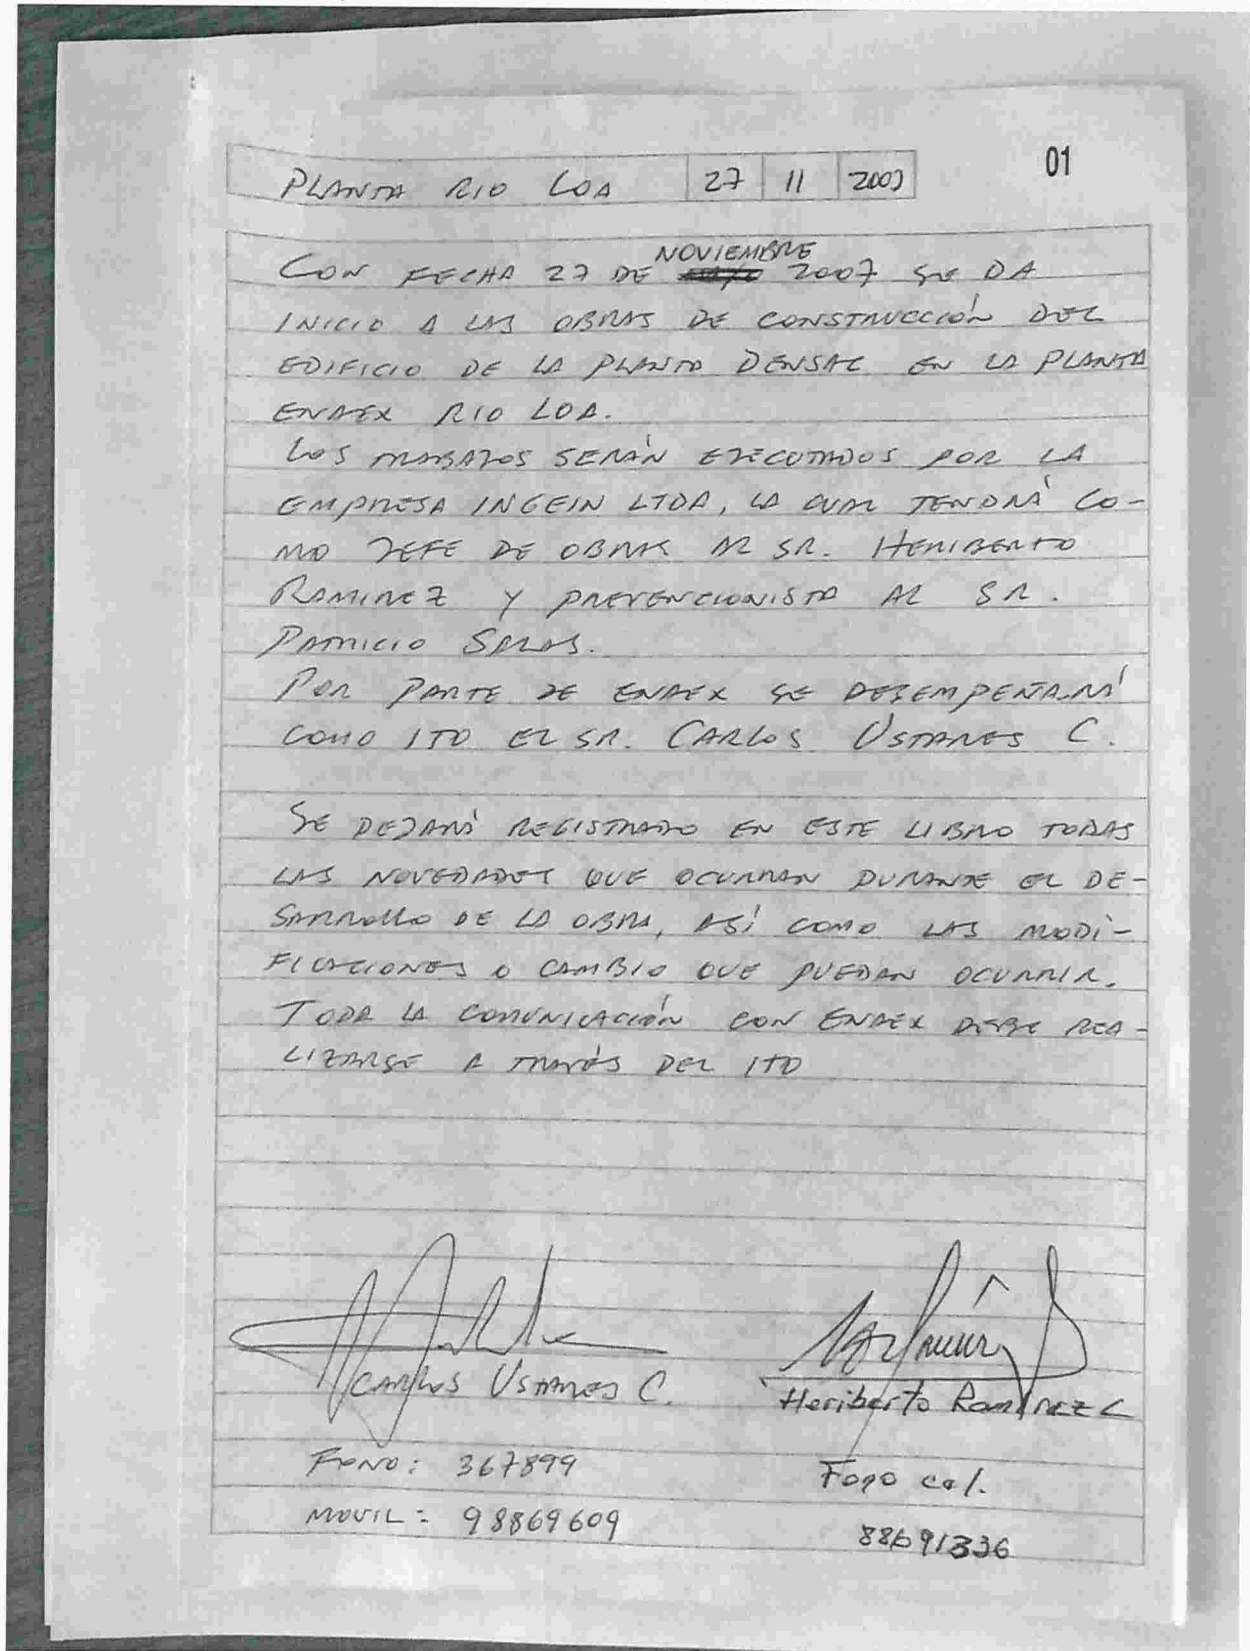 01
PLANTA RIO LOA 27 11 2007
NOVIEMBRE
CON FECHA 27 DE 2007 SE DA
INICIO A LAS OBRAS DE CONSTRUCCIÓN DEL
EDIFICIO DE LA PLANTA DENSAL EN LA PLANTA
ENAEX RIO LOA.
LOS TRABAJOS SERÁN EJECUTADOS POR LA
EMPRESA INGEIN LTDA, LA CUAL TENDRÁ CO-
MO JEFE DE OBRAS AL SR. HERIBERTO
RAMIREZ Y PREVENCIONISTA AL SR.
PATRICIO SALAS.
POR PARTE DE ENAEX SE DESEMPEÑARÁ
COMO ITO EL SR. CARLOS USTARES C.
SE DEJARÁ REGISTRADO EN ESTE LIBRO TODAS
LAS NOVEDADES QUE OCURRAN DURANTE EL DE-
SARROLLO DE LA OBRA, ASÍ COMO LAS MODI-
FICACIONES O CAMBIO QUE PUEDAN OCURRIR.
TODA LA COMUNICACIÓN CON ENAEX DEBE REA-
LIZARSE A TRAVÉS DEL ITO
CARLOS USTARES C.
Heriberto Ramirez C
FONO: 367899
Fono cel.
MOVIL: 98869609
88691336